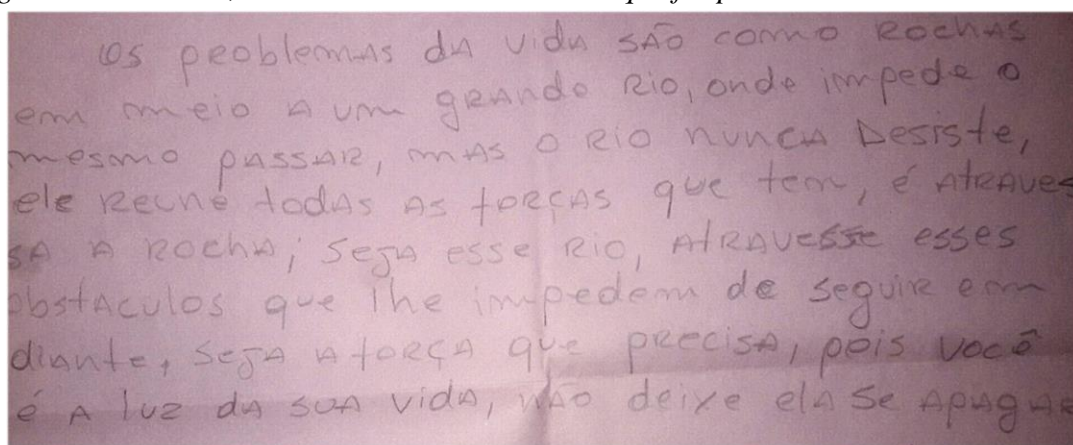 Os problemas da vida são como Rochas
em meio a um grande Rio, onde impede o
mesmo passar, mas o Rio nunca Desiste,
ele Reune todas as forças que tem, é atraves
sa a Rocha; seja esse Rio, atravesse esses
obstaculos que lhe impedem de seguir em
diante, seja a força que precisa, pois você
é a luz da sua vida, não deixe ela se apagar